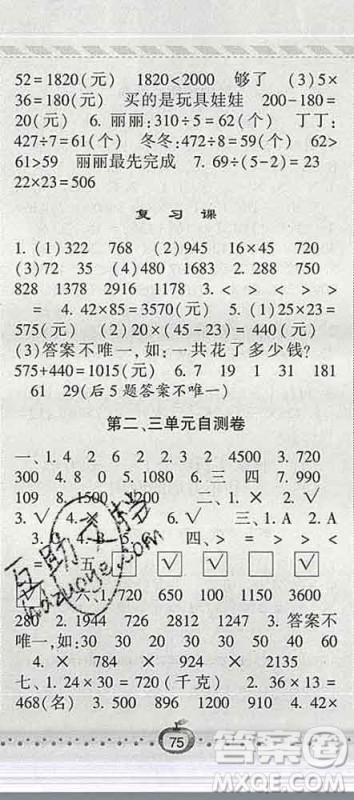 52=1820(元) 1820<2000 够了 (3)5×
36=180(元) 买的是玩具娃娃 200-180=
20(元) 6. 丽丽:310÷5=62(个) 丁丁:
427÷7=61(个) 冬冬:472÷8=59(个) 62>
61>59 丽丽最先完成 7. 69÷(5-2)=23
22×23=506
复习课
1. (1)322 768 (2)945 16×45 720
(3)72 35 (4)480 1683 2. 288 750
828 1378 2916 1178 3. < > < >
= 4. 42×85=3570(元) 5. (1)25×23=
575(元) (2)20×(45-23)=440(元)
(3)答案不唯一,如:一共花了多少钱?
575+440=1015(元) 6. 7 19 1 31 181
61 29(后5题答案不唯一)
第二、三单元自测卷
一、1. 4 2 6 2 2. 2 3. 4500 3. 720
300 4. 8 0 5. 三 四 6. 四 7. 990
109 8. 1500 1200 二、1. × 2. ×
3. √ 4. × 5. √ 三、1. A 2. A
3. 四、> = > <
= 五、 √ √
六、1. 720 650 100 1150 3600
280 2. 1944 726 2812 3. 答案不
唯一,如:30 30 20 40 50 30
4. × 784 × 924 × 2135
七、1. 24×30=720(千克) 2. 36×13=
468(名) 3. 500 896 1200 910 4. 42×
75
互助文学
hdzuowen.com
答案圈
MXQE.COM